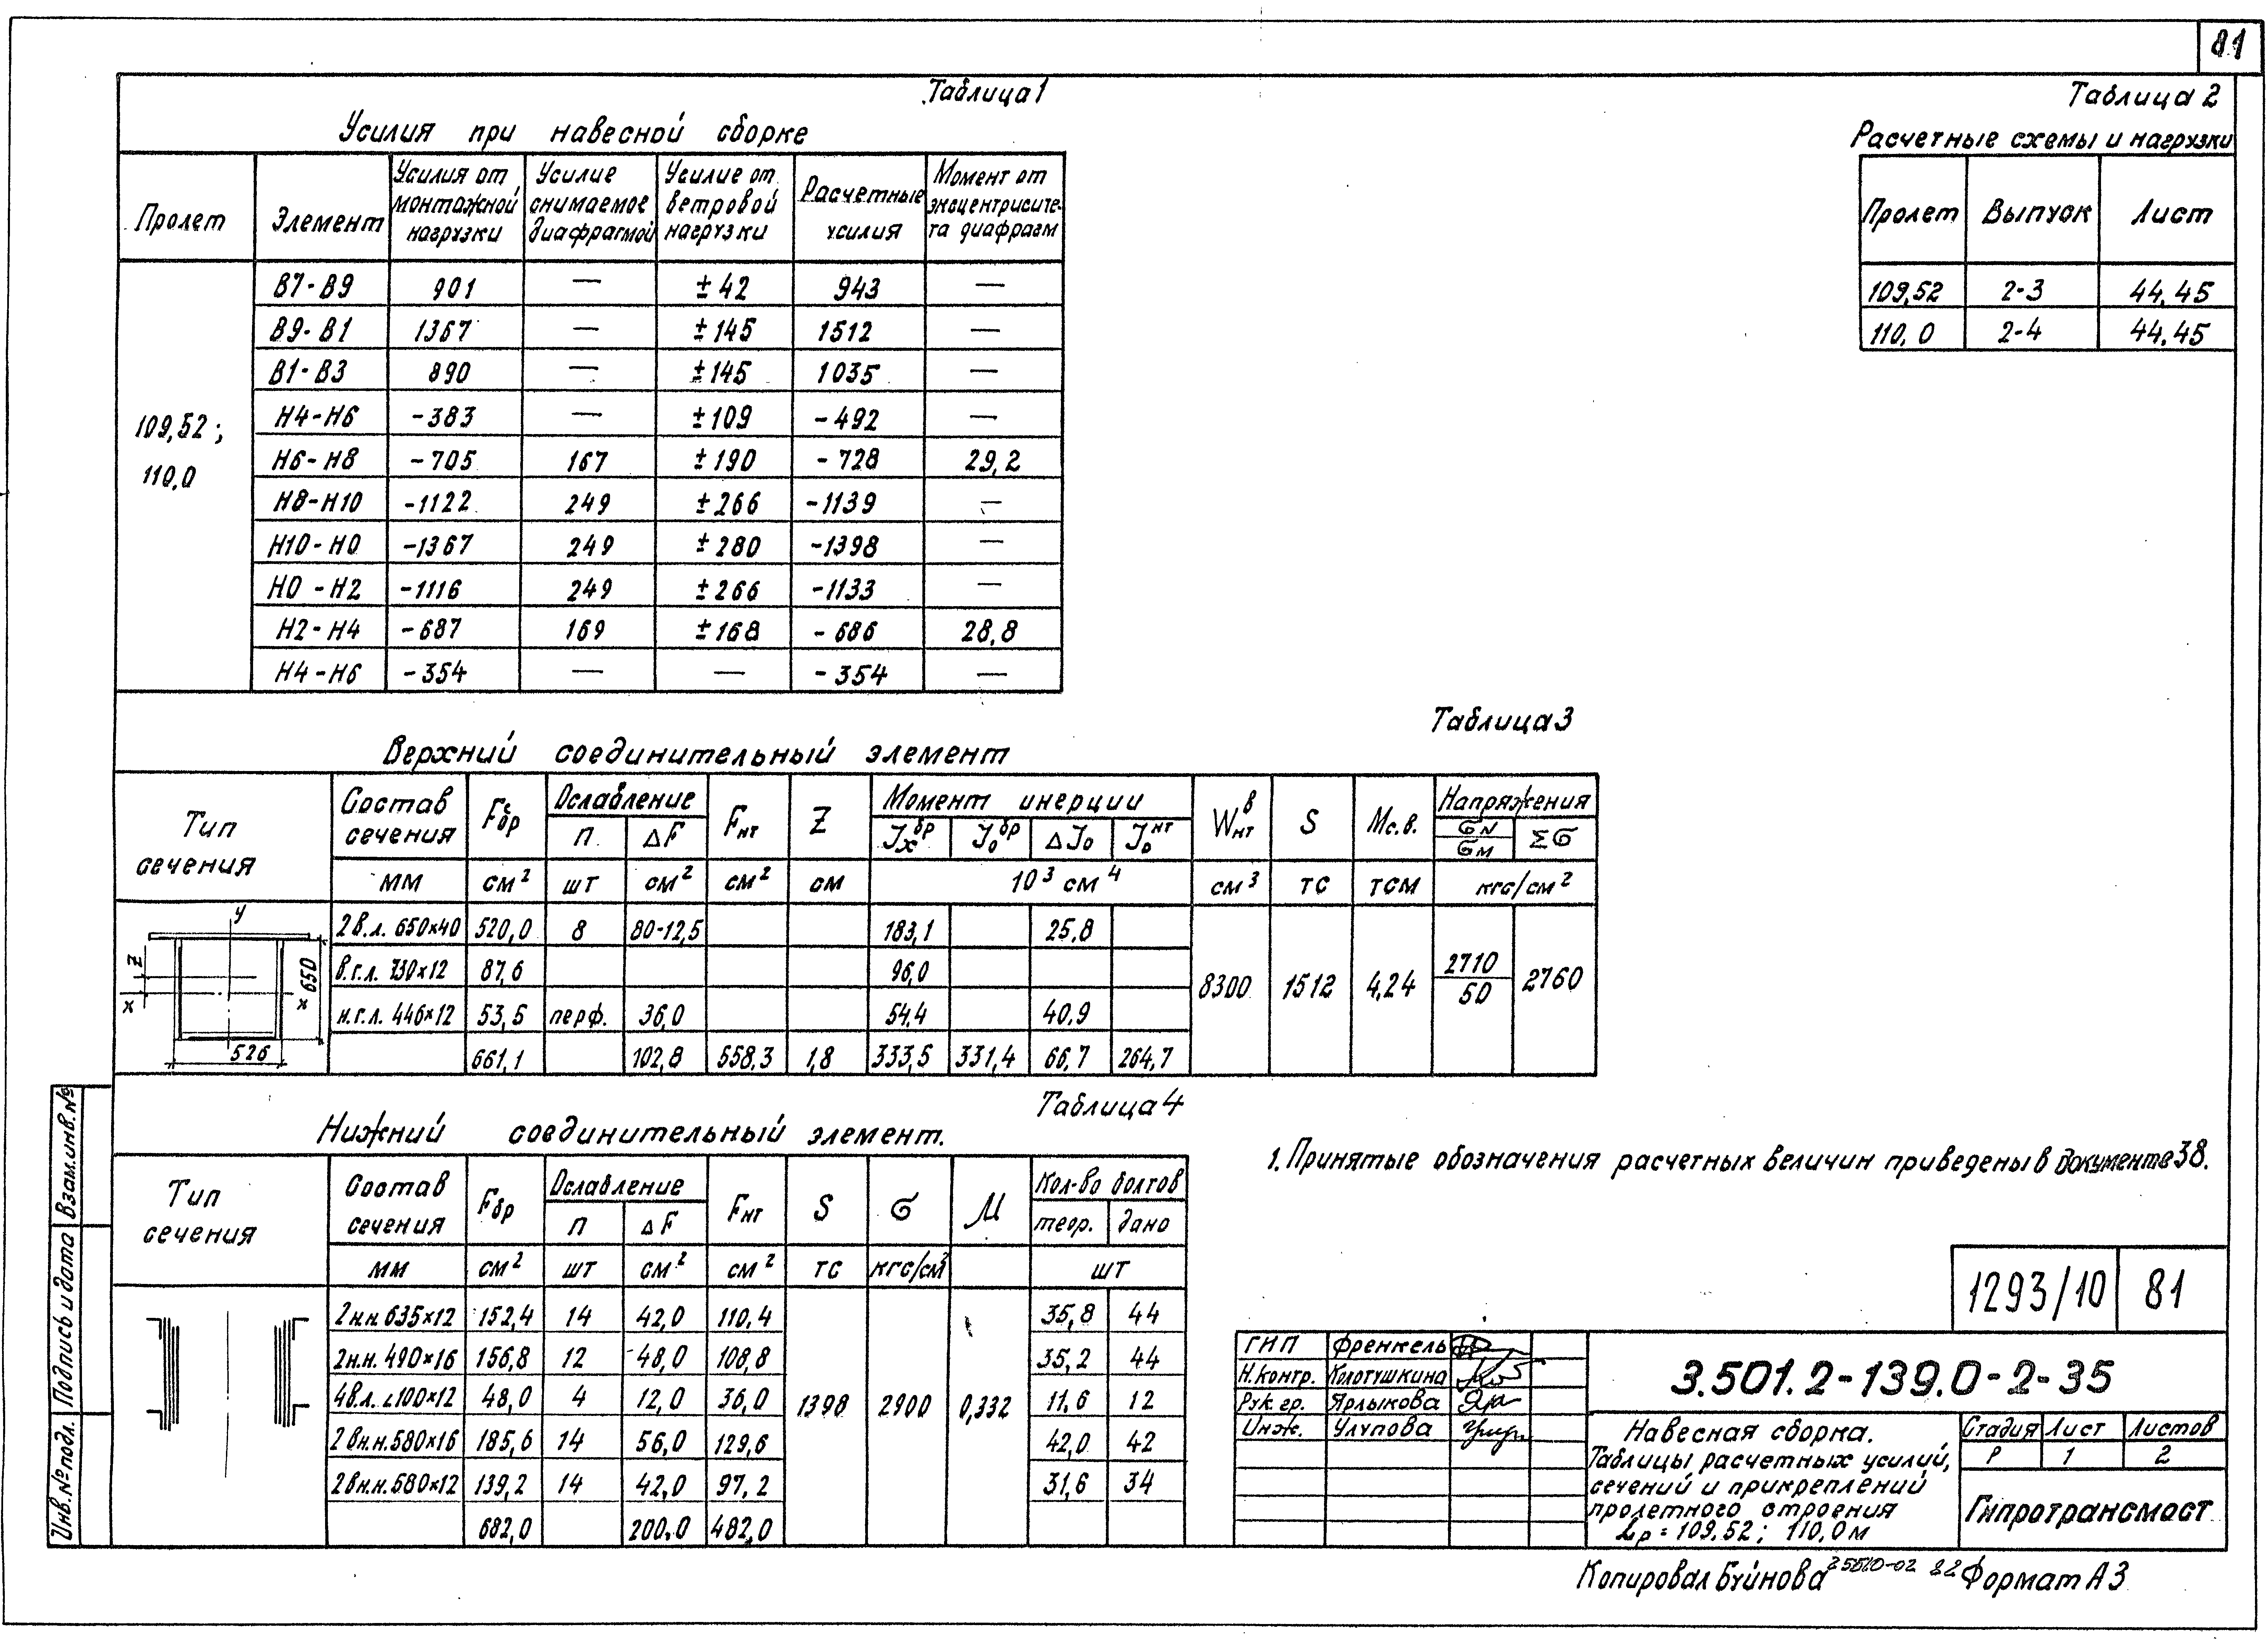 81
Таблица 1
Усилия при навесной сборке
Пролет | Элемент | Усилия от монтажной нагрузки | Усилие снимаемое диафрагмой | Усилие от ветровой нагрузки | Расчетные усилия | Момент от эксцентрисите-та диафрагм
109,52; 110,0
В7-В9 | 901 | — | ±42 | 943 | —
В9-В1 | 1367 | — | ±145 | 1512 | —
В1-В3 | 890 | — | ±145 | 1035 | —
Н4-Н6 | -383 | — | ±109 | -492 | —
Н6-Н8 | -705 | 167 | ±190 | -728 | 29,2
Н8-Н10 | -1122 | 249 | ±266 | -1139 | —
Н10-Н0 | -1367 | 249 | ±280 | -1398 | —
Н0-Н2 | -1116 | 249 | ±266 | -1133 | —
Н2-Н4 | -687 | 169 | ±168 | -686 | 28,8
Н4-Н6 | -354 | — | — | -354 | —
Таблица 2
Расчетные схемы и нагрузки
Пролет | Выпуск | Лист
109,52 | 2-3 | 44.45
110,0 | 2-4 | 44.45
Таблица 3
Верхний соединительный элемент
Тип сечения | Состав сечения | Fбрс | Ослабление | Fнт | Z | Момент инерции | Wнтв | S | Мс.в. | Напряжения
п | ΔF | Jxбр | J0бр | ΔJ0 | J0нт | σN/σM | Σσ
мм | см² | шт | см² | см² | см | 10³ см⁴ | см³ | тс | тсм | кгс/см²
2 в.л. 650×40 | 520,0 | 8 | 80-12,5 | 183,1 | 25,8
в.г.л. 730×12 | 87,6 | 96,0
н.г.л. 446×12 | 53,5 | перф. | 36,0 | 54,4 | 40,9
661,1 | 102,8 | 558,3 | 1,8 | 333,5 | 331,4 | 66,7 | 264,7
8300 | 1512 | 4,24 | 2710/50 | 2760
y
z
x
× 650
526
Таблица 4
Нижний соединительный элемент.
Тип сечения | Состав сечения | Fбр | Ослабление | Fнт | S | σ | μ | Кол-во болтов
п | ΔF | теор. | дано
мм | см² | шт | см² | см² | тс | кгс/см² | шт
2н.н. 635×12 | 152,4 | 14 | 42,0 | 110,4 | 35,8 | 44
2н.н. 490×16 | 156,8 | 12 | 48,0 | 108,8 | 35,2 | 44
4в.л. ∟100×12 | 48,0 | 4 | 12,0 | 36,0 | 11,6 | 12
2 вн.н. 580×16 | 185,6 | 14 | 56,0 | 129,6 | 42,0 | 42
2 вн.н. 580×12 | 139,2 | 14 | 42,0 | 97,2 | 31,6 | 34
682,0 | 200,0 | 482,0
1398 | 2900 | 0,332
1. Принятые обозначения расчетных величин приведены в документе 38.
1293/10 | 81
ГИП | Френкель
Н.контр. | Колотушкина
Рук. гр. | Ярлыкова
Инж. | Улупова
3.501.2-139.0-2-35
Навесная сборка.
Таблицы расчетных усилий,
сечений и прикреплений
пролетного строения
Lр = 109.52; 110,0 м
Стадия | Лист | Листов
Р | 1 | 2
Гипротрансмост
Инв. № подл. | Подпись и дата | Взам. инв. №
Копировал Буйнова 25510-02 82 Формат А3